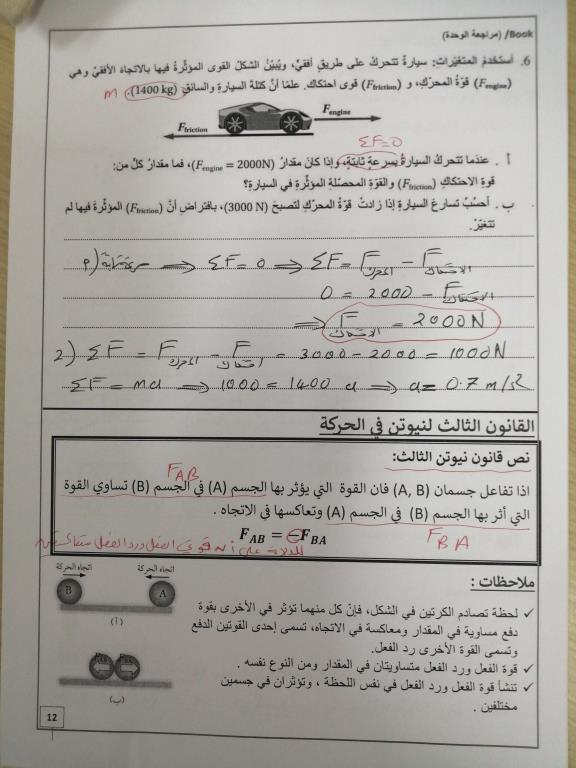 Book/ (مراجعة الوحدة)
6. أستخدمُ المتغيّرات: سيارةٌ تتحركُ على طريقٍ أفقيٍّ، ويُبيّنُ الشكلُ القوى المؤثّرةَ فيها بالاتجاهِ الأفقيّ وهي
(Fengine) قوّةُ المحرّكِ، و (Ffriction) قوى احتكاك. علمًا أنّ كتلةَ السيارةِ والسائقِ (1400 kg). m
Fengine
Ffriction
ΣF=0
أ . عندَما تتحركُ السيارةُ بسرعةٍ ثابتةٍ، وإذا كانَ مقدارُ (Fengine = 2000N)، فما مقدارُ كلٍّ من:
قوةِ الاحتكاكِ (Ffriction) والقوّةِ المحصّلةِ المؤثّرةِ في السيارةِ؟
ب . أحسُبُ تسارعَ السيارةِ إذا زادتْ قوّةُ المحرّكِ لتصبحَ (3000 N)، بافتراضِ أنَّ (Ffriction) المؤثّرةَ فيها لم
تتغيّرْ.
أ) سرعة ثابتة ⇒ ΣF = 0 ⇒ ΣF = Fالمحرك − Fالاحتكاك
0 = 2000 − Fالاحتكاك
⇒ Fالاحتكاك = 2000N
2) ΣF = Fالمحرك − Fاحتكاك = 3000 − 2000 = 1000N
ΣF = ma ⇒ 1000 = 1400 a ⇒ a = 0.7 m/s²
القانون الثالث لنيوتن في الحركة
نص قانون نيوتن الثالث:
FAB
اذا تفاعل جسمان (A, B) فان القوة التي يؤثر بها الجسم (A) في الجسم (B) تساوي القوة
التي أثر بها الجسم (B) في الجسم (A) وتعاكسها في الاتجاه .
FAB = −FBA
FBA
للدلالة على أن قوتي الفعل ورد الفعل متعاكستين
ملاحظات :
✓ لحظة تصادم الكرتين في الشكل، فإنّ كل منهما تؤثر في الأخرى بقوة
دفع مساوية في المقدار ومعاكسة في الاتجاه، تسمى إحدى القوتين الدفع
وتسمى القوة الأخرى رد الفعل.
✓ قوة الفعل ورد الفعل متساويتان في المقدار ومن النوع نفسه .
✓ تنشأ قوة الفعل ورد الفعل في نفس اللحظة ، وتؤثران في جسمين
مختلفين .
اتجاه الحركة
اتجاه الحركة
B
A
(أ)
(ب)
12